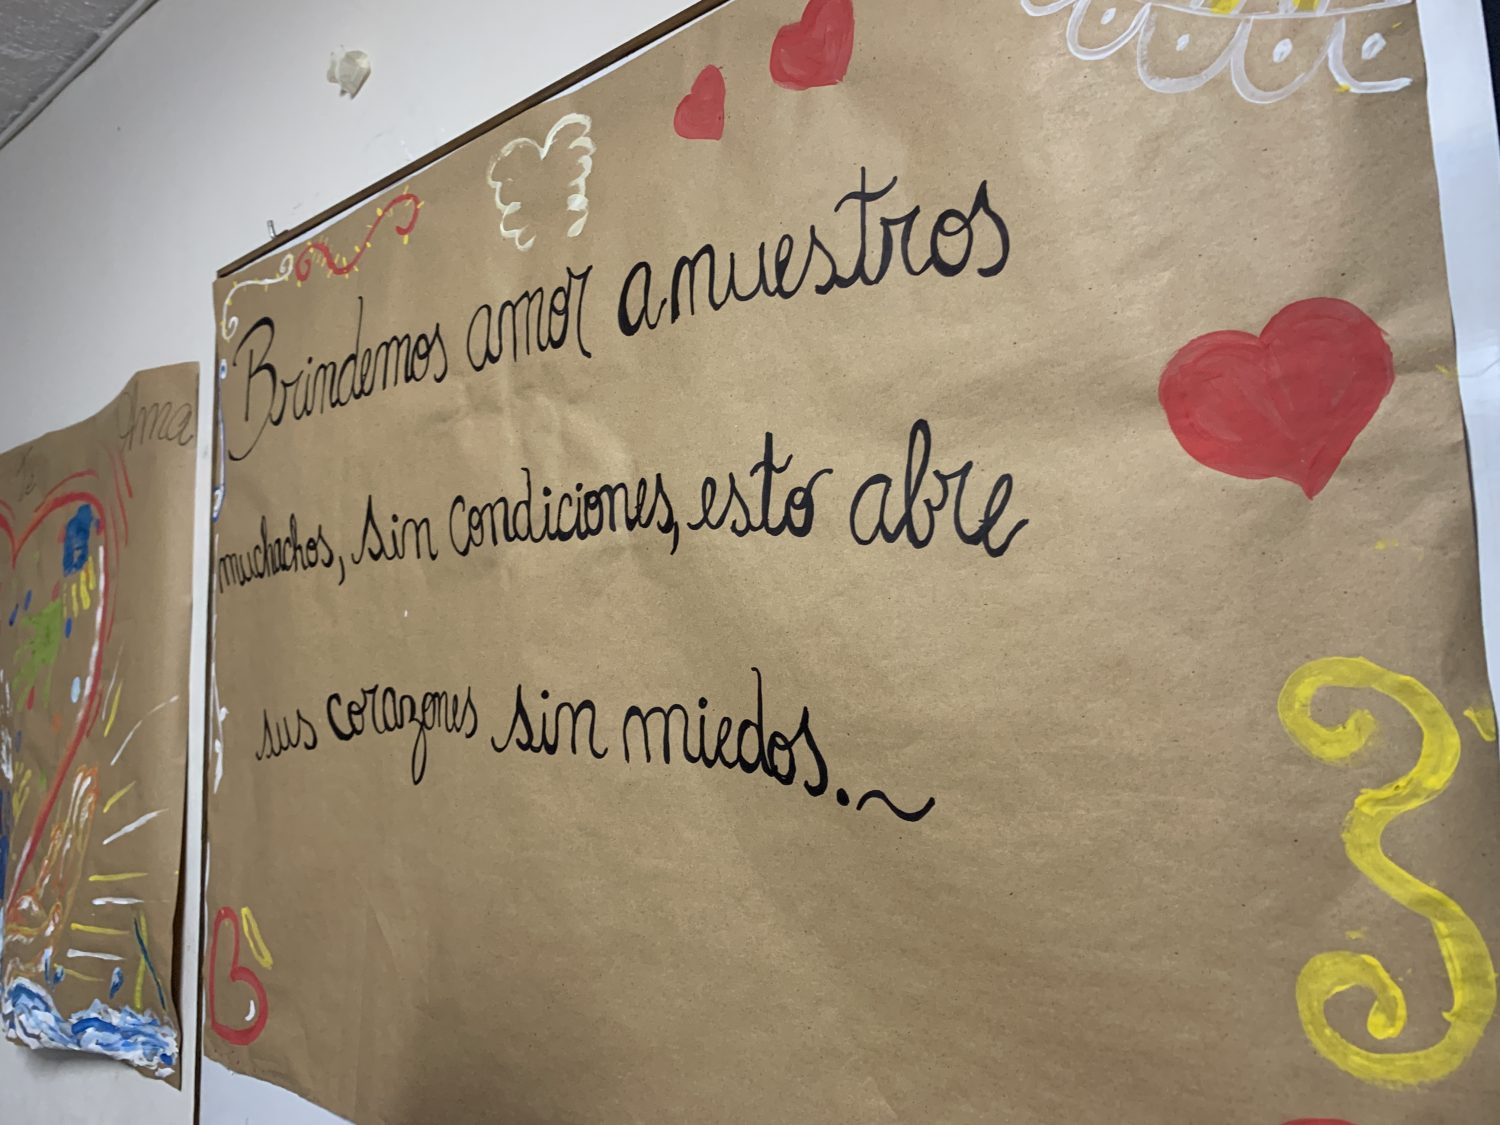 Te Ama
Brindemos amor a nuestros
muchachos, sin condiciones, esto abre
sus corazones sin miedos.~